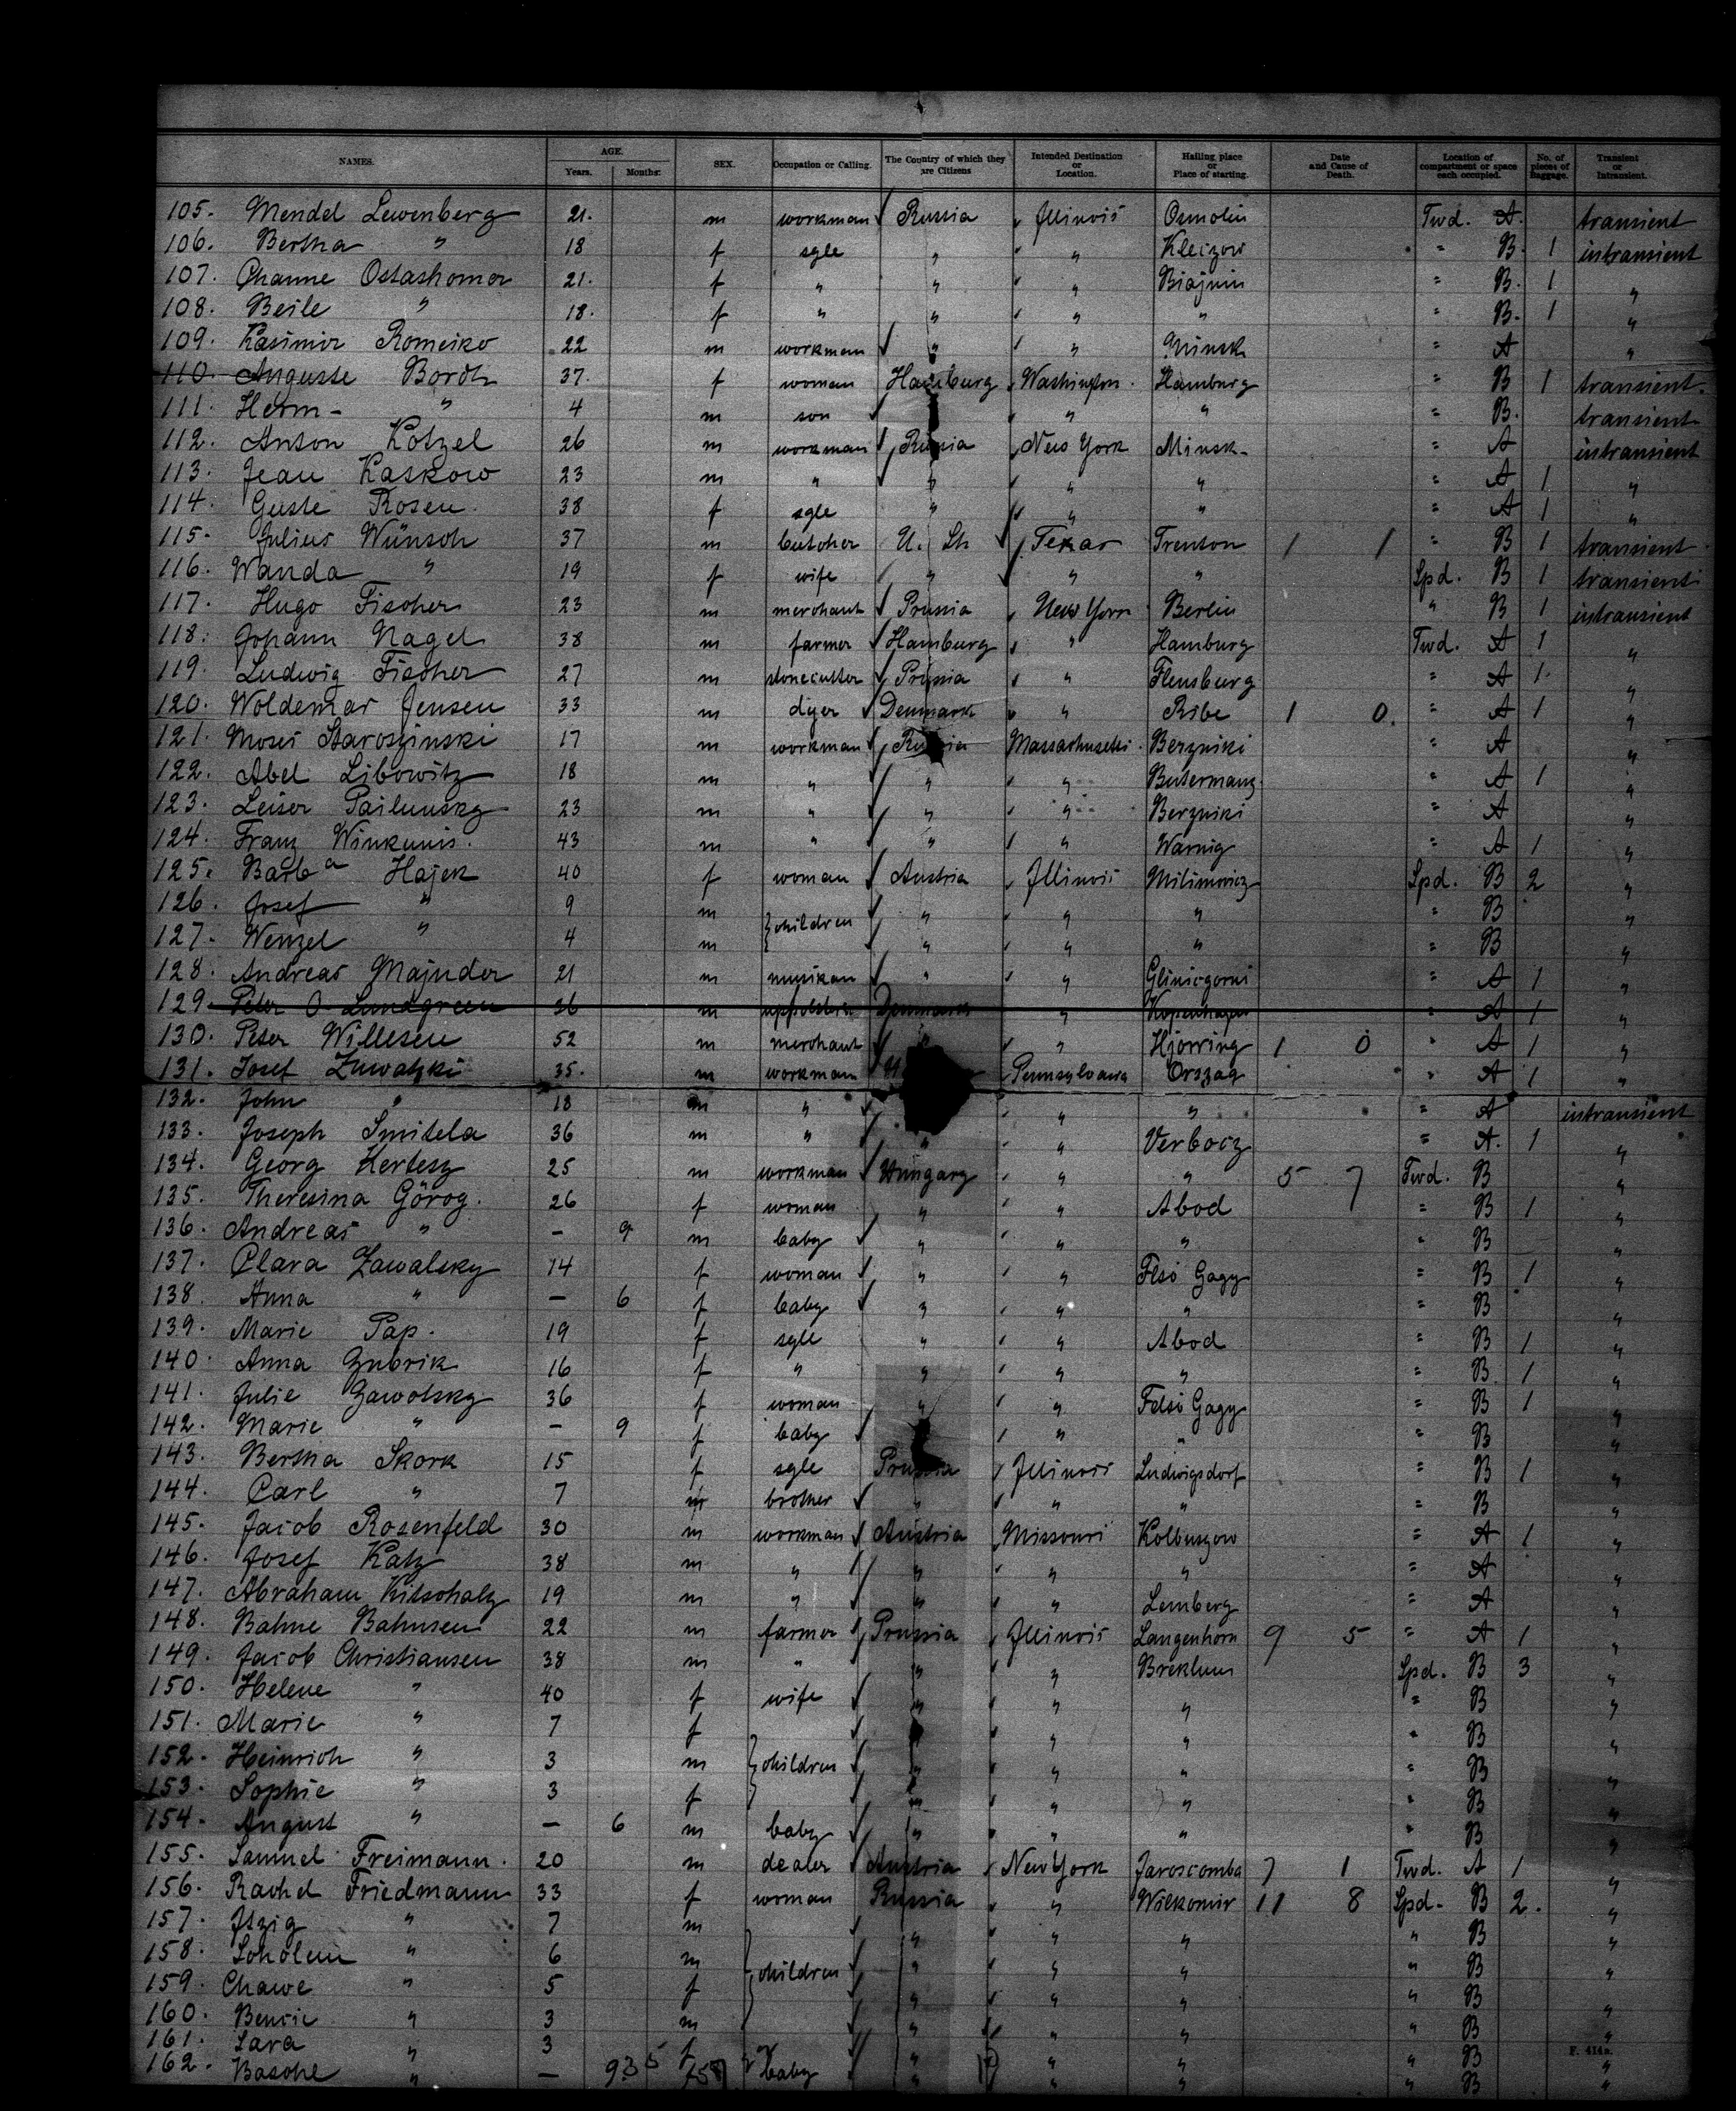 NAMES. AGE. SEX. Occupation or Calling. The Country of which they are Citizens Intended Destination or Location. Hailing place or Place of starting. Date and Cause of Death. Location of compartment or space each occupied. No. of pieces of Baggage. Transient or Intransient.
Years. Months.
105. Mendel Lewenberg 21. m workman Russia Illinois Osmolin Twd. A. transient
106. Bertha " 18 f sgle " " Kleizow " B. 1 intransient
107. Channe Ostashomer 21. f " " " Biajnin " B. 1 "
108. Beile " 18. f " " " " " B. 1 "
109. Kasimir Romeiko 22 m workman " " Minsk " A "
110. Auguste Bordt 37. f woman Hamburg Washington. Hamburg " B 1 transient.
111. Herm- " 4 m son " " " B. transient
112. Anton Kotzel 26 m workman Russia New York Minsk- " A intransient
113. Jean Kaskow 23 m " " " " " A 1 "
114. Guste Rosen. 38 f sgle " " " " A 1 "
115. Julius Wünsch 37 m butcher U. St. Texas Trenton 1 1 " B 1 transient
116. Wanda " 19 f wife " " " Spd. B 1 transient
117. Hugo Fischer 23 m merchant Prussia New York Berlin " B 1 intransient
118. Johann Nagel 38 m farmer Hamburg " Hamburg Twd. A 1 "
119. Ludwig Fischer 27 m stonecutter Prussia " Flensburg " A 1. "
120. Woldemar Jensen 33 m dyer Denmark " Ribe 1 0. " A 1 "
121. Moses Staroszinski 17 m workman Russia Massachusetts. Berzniki " A "
122. Abel Libowitz 18 m " " " Butermanz. " A 1 "
123. Leiser Pailunsky 23 m " " " Berzniki " A "
124. Franz Winkunis. 43 m " " " Warnig " A 1 "
125. Barba Hajek 40 f woman Austria Illinois Milimovicz Spd. B 2 "
126. Josef " 9 m children " " " " B "
127. Wenzel " 4 m " " " " B "
128. Andreas Majnder 21 m musikan " " Glinicgorni " A 1 "
129. Peter O Lundgreen 36 m Denmark " Kopenhagen " A 1 "
130. Peter Willesen 52 m merchant " " Hjörring 1 0 " A 1 "
131. Josef Zuwatzki 35. m workman Pennsylvania Orszag " A 1 "
132. John " 18 m " " " " A intransient
133. Joseph Smitela 36 m " " " Verbocz " A. 1 "
134. Georg Hertesz 25 m workman Hungary " " 5 7 Twd. B "
135. Theresina Görog. 26 f woman " " Abod " B 1 "
136. Andreas " - 9 m baby " " " " B "
137. Clara Zawalsky 14 f woman " " Flsö Gagy " B 1 "
138. Anna " - 6 f baby " " " " B "
139. Marie Pap. 19 f sgle " " Abod " B 1 "
140. Anna Zubrik 16 f " " " " " B. 1 "
141. Julie Gawolsky 36 f woman " " Felsö Gagy " B 1 "
142. Marie " - 9 f baby " " " B "
143. Bertha Skork 15 f sgle Prussia Illinois Ludwigsdorf " B 1 "
144. Carl " 7 m brother " " " " B "
145. Jacob Rosenfeld 30 m workman Austria Missouri Kolbuszow " A 1 "
146. Josef Katz 38 m " " " " " A "
147. Abraham Kitschalz 19 m " " " Lemberg " A "
148. Bahne Bahnsen 22 m farmer Prussia Illinois Langenhorn 9 5 " A 1 "
149. Jacob Christiansen 38 m " " " Breklum Spd. B 3 "
150. Helene " 40 f wife " " " " B "
151. Marie " 7 f " " " " B "
152. Heinrich " 3 m children " " " " B "
153. Sophie " 3 f " " " " B "
154. August " - 6 m baby " " " " B "
155. Samuel Freimann. 20 m dealer Austria New York Jaroscomba 7 1 Twd. A 1 "
156. Rachel Friedmann 33 f woman Russia " Wilkomir 11 8 Spd. B 2. "
157. Itzig " 7 m " " " " B "
158. Scholem " 6 m children " " " " B "
159. Chawe " 5 f " " " " B
160. Bensie " 3 m " " " " B "
161. Sara " 3 f " " " " B "
162. Basche " - 9 baby " " " " B "
F. 414a.